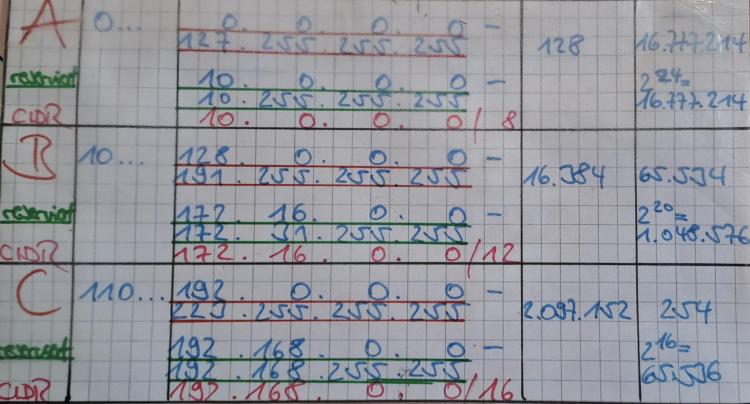 A 0... 0. 0. 0. 0 -
127. 255. 255. 255 128 16.777.214
reserviert 10. 0. 0. 0 - 2^24=
10. 255. 255. 255 16.777.214
CIDR 10. 0. 0. 0/8
B 10... 128. 0. 0. 0 -
191. 255. 255. 255 16.384 65.534
reserviert 172. 16. 0. 0 - 2^20=
172. 31. 255. 255 1.048.576
CIDR 172. 16. 0. 0/12
C 110... 192. 0. 0. 0 -
223. 255. 255. 255 2.097.152 254
reserviert 192. 168. 0. 0 - 2^16=
192. 168. 255. 255 65.536
CIDR 192. 168. 0. 0/16